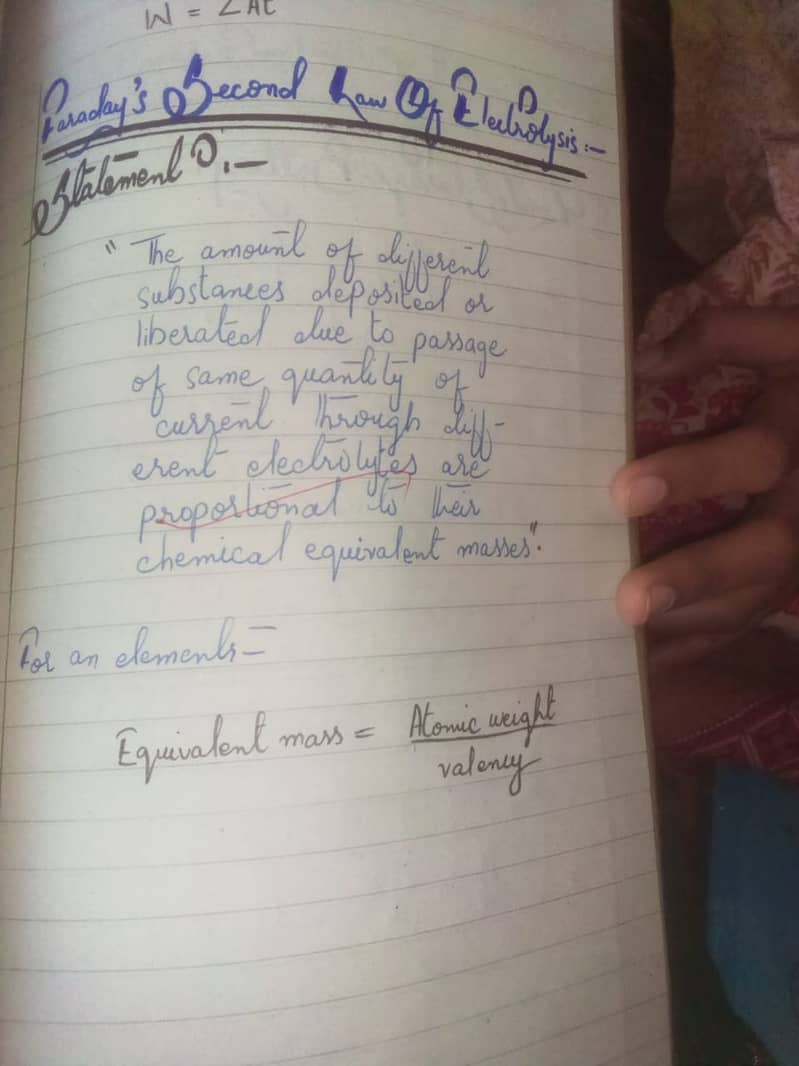 W = ZAt
Faraday's Second Law Of Electrolysis :-
Statement :-
" The amount of different
substances deposited or
liberated due to passage
of same quantity of
current through diff-
erent electrolytes are
proportional to their
chemical equivalent masses".
For an elements-
Equivalent mass = Atomic weight
valency